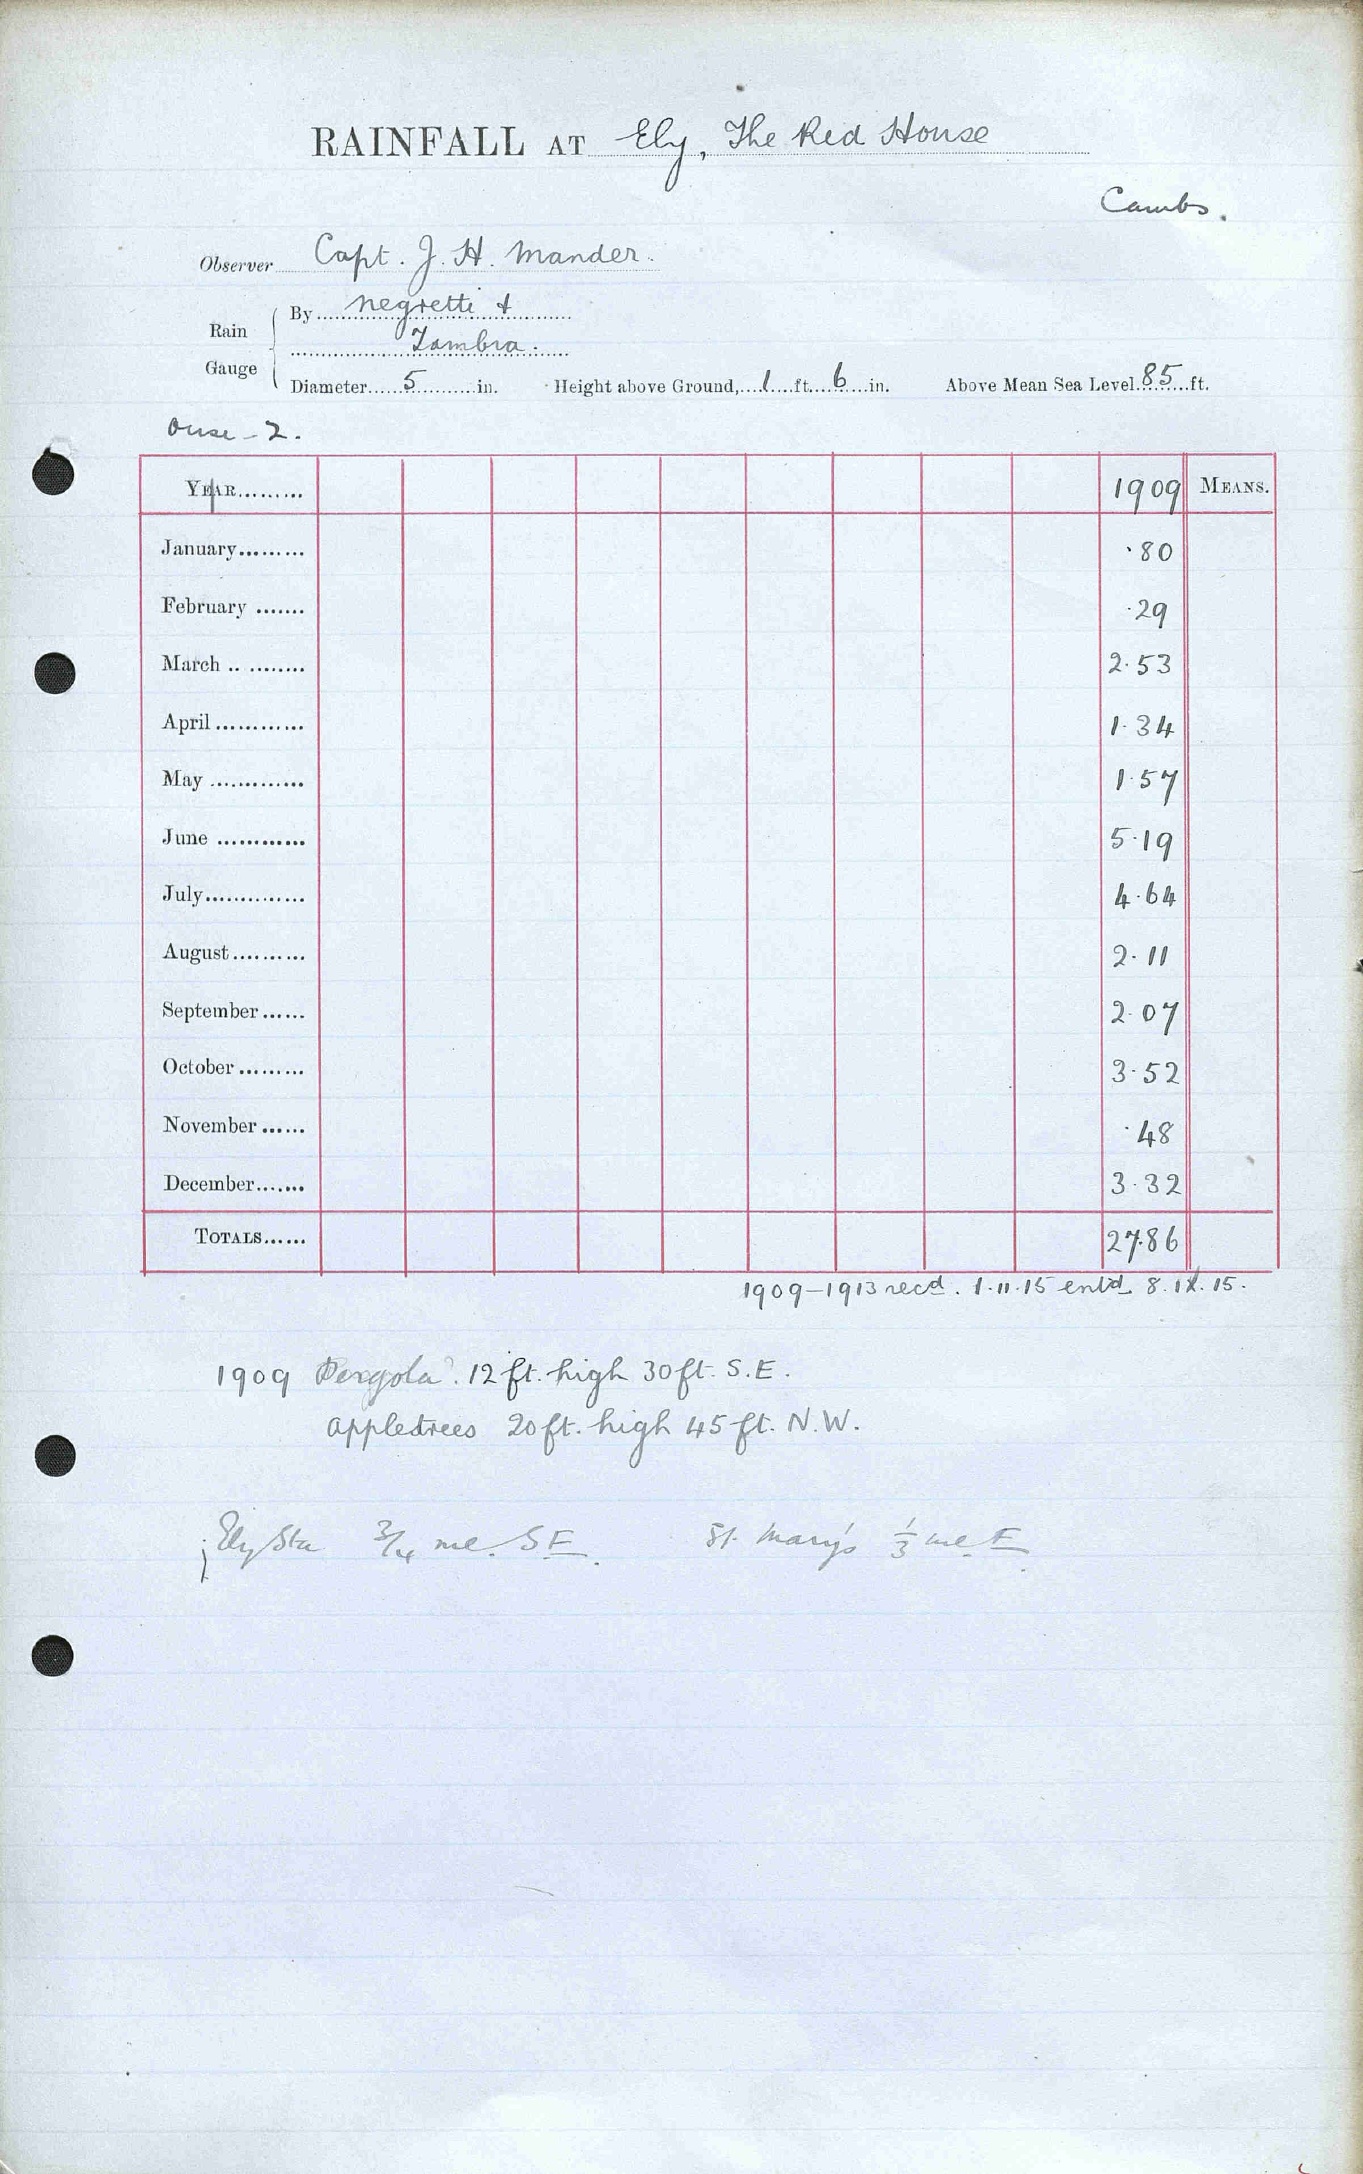 RAINFALL AT Ely, The Red House
Cambs.
Observer Capt. J. H. Mander.
Rain Gauge { By Negretti &
Zambra.
Diameter 5 in. Height above Ground, 1 ft. 6 in. Above Mean Sea Level 85 ft.
Ouse - 2.
YEAR......... 1909 MEANS.
January......... ·80
February ....... ·29
March .. ........ 2·53
April ............ 1·34
May ............. 1·57
June ............ 5·19
July.............. 4·64
August.......... 2·11
September...... 2·07
October......... 3·52
November...... ·48
December....... 3·32
TOTALS...... 27·86
1909-1913 recd. 1.11.15 entd. 8.12.15.
1909 Pergola. 12 ft. high 30 ft. S.E.
appletrees 20 ft. high 45 ft. N.W.
Ely Sta 3/4 me. S E. St. Mary's 1/3 me. E.